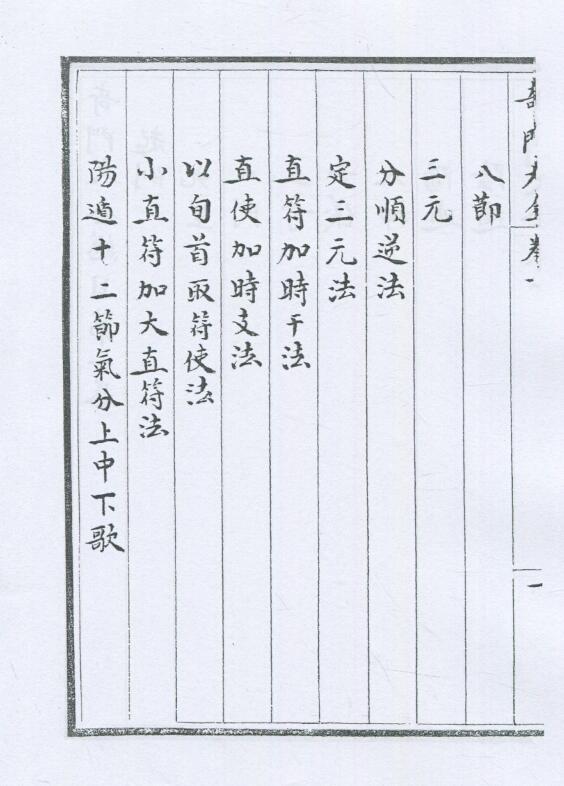 奇門大全卷一
一
八節
三元
分順逆法
定三元法
直符加時干法
直使加時支法
以旬首取符使法
小直符加大直符法
陽遁十二節氣分上中下歌